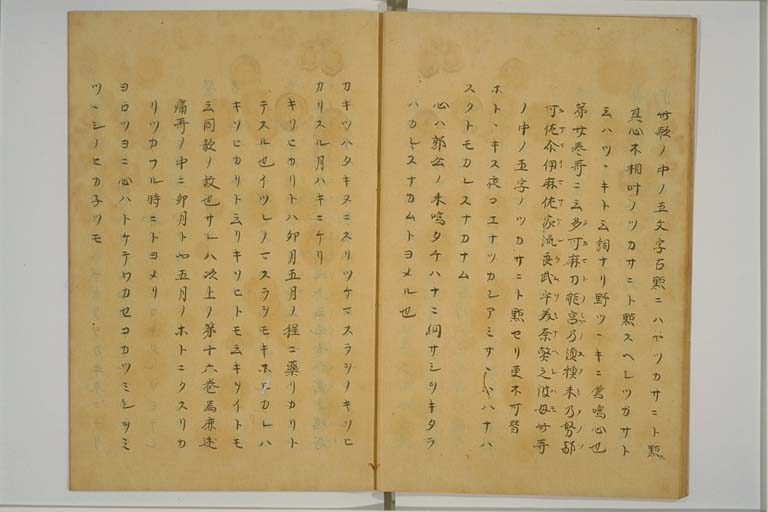 此歌ノ中ノ五文字古點ニハヤツカサニト點
其心不相叶ノツカサニト點スヘシツカサト
云ハツヽキト云詞ナリ野ツヽキニ鶯鳴心也
第廿卷哥ニ云多可麻刀能宮乃須蘇未乃努都
可佐尒伊麻佐家流良武乎美奈弊之波母此哥
ノ中ノ五字ノツカサニト點セリ更不可替
ホトヽキス夜コエナツカシアミサヽハハナハ
スクトモカレスナカナム
心ハ郭公ノ来鳴タチハナニ網サシツキタラ
ハカレスナカムトヨメル也
カキツハタキヌニスリツケマスラヲノキソヒ
カリスル月ハキニケリ
キソヒカリトハ卯月五月ノ程ニ藥リカリト
テスル也イツレノマスラヲモキホヒカレハ
キソヒカリト云リキソヒトモ云キソイトモ
云同韵ノ故也サレハ次上ノ第十六卷為鹿述
痛哥ノ中ニ卯月トヤ五月ノホトニクスリカ
リツカフル時ニトヨメリ
ヨロツヨニ心ハトケテワカセコカツミシヲミ
ツヽシノヒカ子ツモ